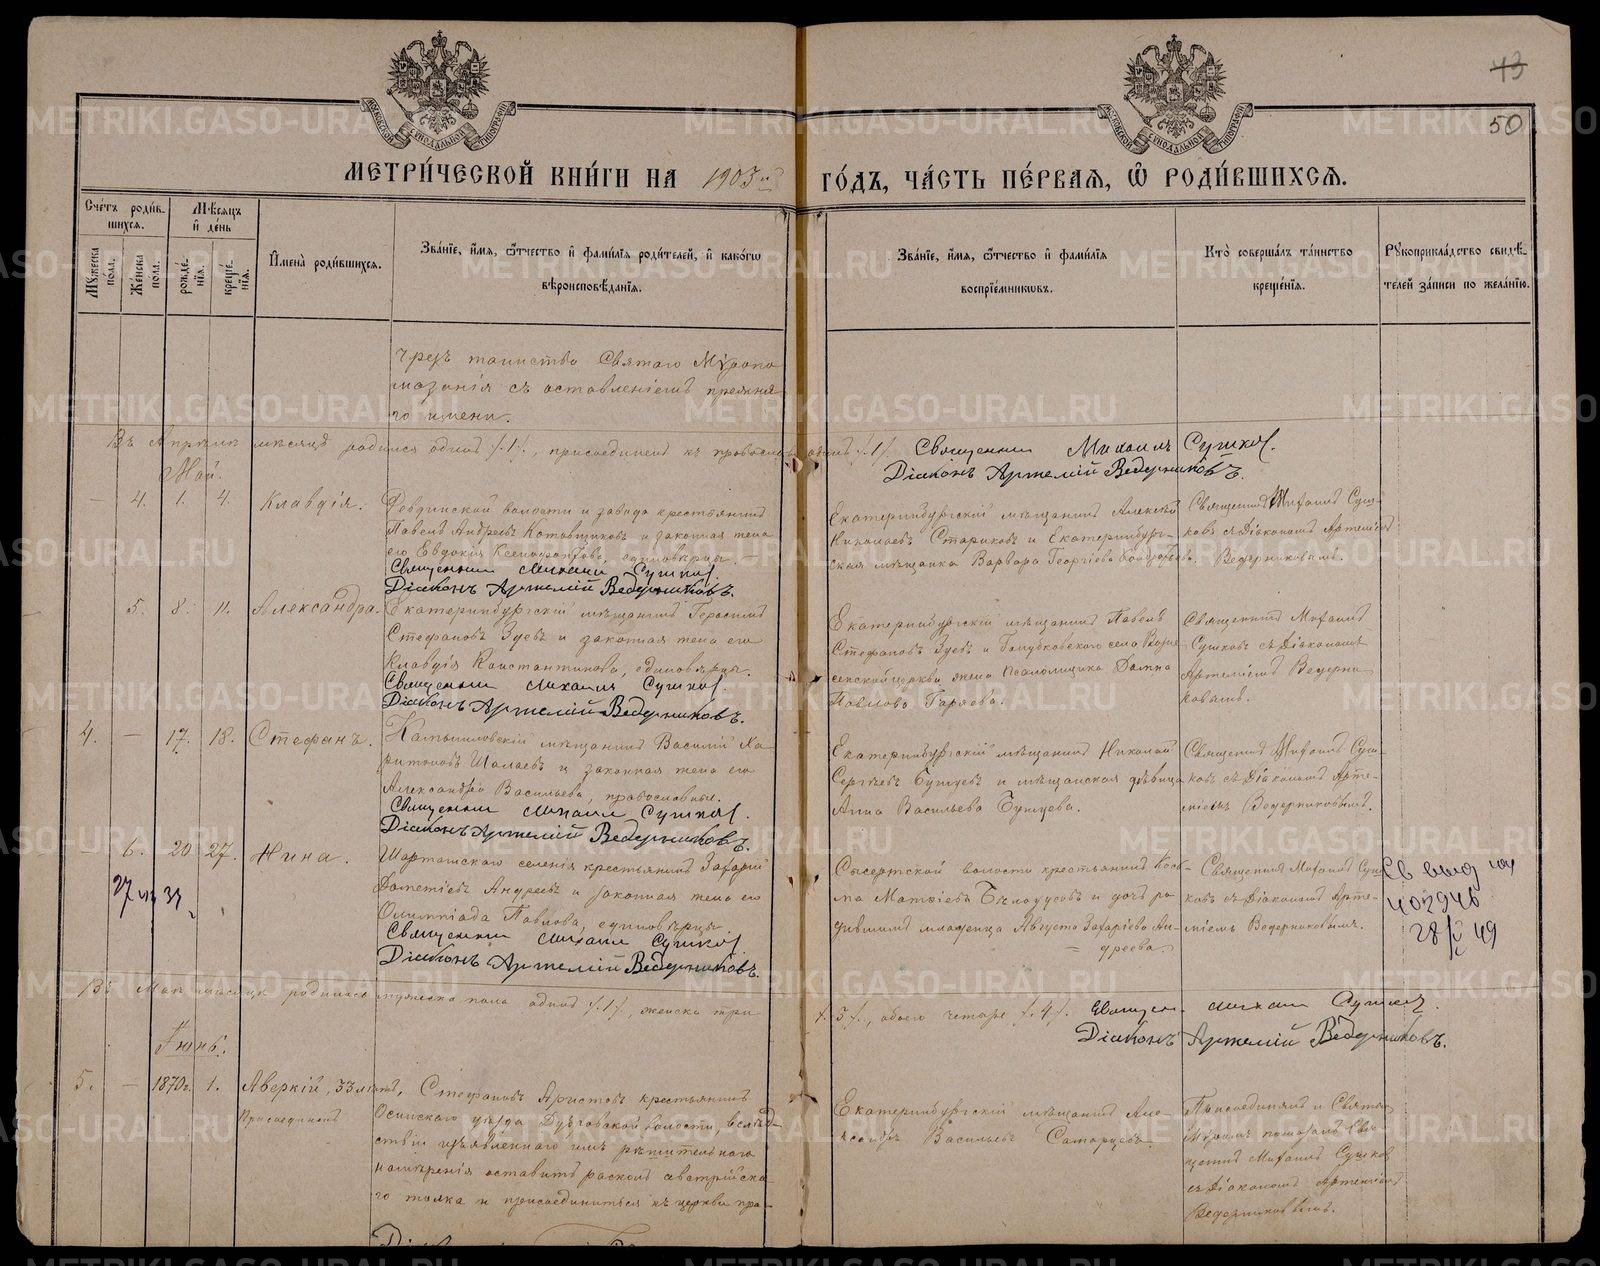 43
50
МЕТРИ́ЧЕСКОЙ КНИ́ГИ НА 1903 й ГО́ДЪ, ЧА́СТЬ ПЕ́РВАЯ, Ѡ РОДИ́ВШИХСЯ.
МОСКОВСКОЙ СѴНОДАЛЬНОЙ ТИПОГРАФІИ
МОСКОВСКОЙ СѴНОДАЛЬНОЙ ТИПОГРАФІИ
Сче́тъ роди́в-
шихся.
Мѣ́сяцъ
и҆ де́нь
Мꙋ́жеска по́ла.
Же́нска по́ла.
рожде́нїѧ.
креще́нїѧ.
И҆мена̀ роди́вшихся.
Зва́нїе, и҆́мя, ѻ҆́тчество и҆ фами́лїя роди́телей, и҆ како́гѡ
вѣроисповѣ́данїя.
Зва́нїе, и҆́мя, ѻ҆́тчество и҆ фами́лїя
воспрїе́мникѡвъ.
Кто̀ соверша́лъ та́инство
креще́нїя.
Рꙋкоприкла́дство свидѣ́-
телей за́писи по жела́нїю.
чрезъ таинство Святаго Мѵропо
мазанія съ оставленіемъ прежня-
го имени.
Въ Апрѣлѣ мѣсяцѣ родился одинъ /.1/., присоединенъ къ православію одинъ /.1/.
Священникъ Михаилъ Сушков.
Діаконъ Артемій Ведерниковъ.
Май.
— 4. 1. 4. Клавдія.
Ревдинской волости и завода крестьянинъ
Павелъ Андреевъ Котовщиковъ и законная жена
его Евдокія Ксенофонтова, единовѣрцы.—
Священник Михаил Сушков.
Діаконъ Артемій Ведерниковъ.
Екатеринбургскій мѣщанинъ Алексѣй
Николаевъ Стариковъ и Екатеринбург-
ская мѣщанка Варвара Георгіева
Священникъ Михаилъ Суш-
ковъ съ Діакономъ Артеміемъ
Ведерниковымъ.
5. 8. 11. Александра.
Екатеринбургскій мѣщанинъ Герасимъ
Стефановъ Зуевъ и законная жена его
Клавдія Константинова, единовѣрцы.
Священник Михаилъ Сушков.
Діаконъ Артемій Ведерниковъ.
Екатеринбургскій мѣщанинъ Павелъ
Стефановъ Зуевъ и Голубковскаго села Возне
сенской церкви жена Псаломщика Домна
Павлова Гаряева.
Священникъ Михаилъ
Сушковъ съ Діакономъ
Артеміемъ Ведерни
ковымъ.
4. — 17. 18. Стефанъ.
Камышловскій мѣщанинъ Василій Ха-
ритоновъ Шалаевъ и законная жена его
Александра Васильева, православные.
Священник Михаил Сушков.
Діаконъ Артемій Ведерниковъ.
Екатеринбургскій мѣщанинъ Николай
Сергѣевъ и мѣщанская дѣвица
Анна Васильева
Священникъ Михаилъ Суш-
ковъ съ Діакономъ Арте-
міемъ Ведерниковымъ.
— 6. 20 27. Нина.
Шарташскаго селенія крестьянинъ Захарій
Дометіевъ Андреевъ и законная жена его
Олимпіада Павлова, единовѣрцы
Священник Михаил Сушков
Діаконъ Артемій Ведерниковъ.
Сысертской волости крестьянинъ Кось-
ма Матѳіевъ Бѣлоусовъ и дочь ро
дившимъ младенца Августа Захаріева Ан-
дреева.
Священникъ Михаилъ Суш
ковъ съ Діакономъ Арте-
міемъ Ведерниковымъ.
402946
49
Въ Маѣ мѣсяцѣ родилось мужеска пола одинъ /.1/., женска три /.3/., обоего четыре /.4/.
Священ. Михаил Сушков.
Діаконъ Артемій Ведерниковъ.
Іюнь.
5. — 1870г. 1. Аверкій, 33 лѣтъ,
Присоединенъ
Стефановъ Аристовъ крестьянинъ
Осинскаго уѣзда Дубровской волости, вслѣд-
ствіи изъявленнаго имъ рѣшительнаго
намѣренія оставить расколъ австрійска-
го толка и присоединиться къ церкви пра-
Екатеринбургскій мѣщанинъ Але
ксандръ Васильевъ
Присоединялъ и Святы
Мѵромъ помазалъ Свя
щенникъ Михаилъ Сушков
съ Діакономъ Артеміемъ
Ведерниковымъ.
METRIKI.GASO-URAL.RU